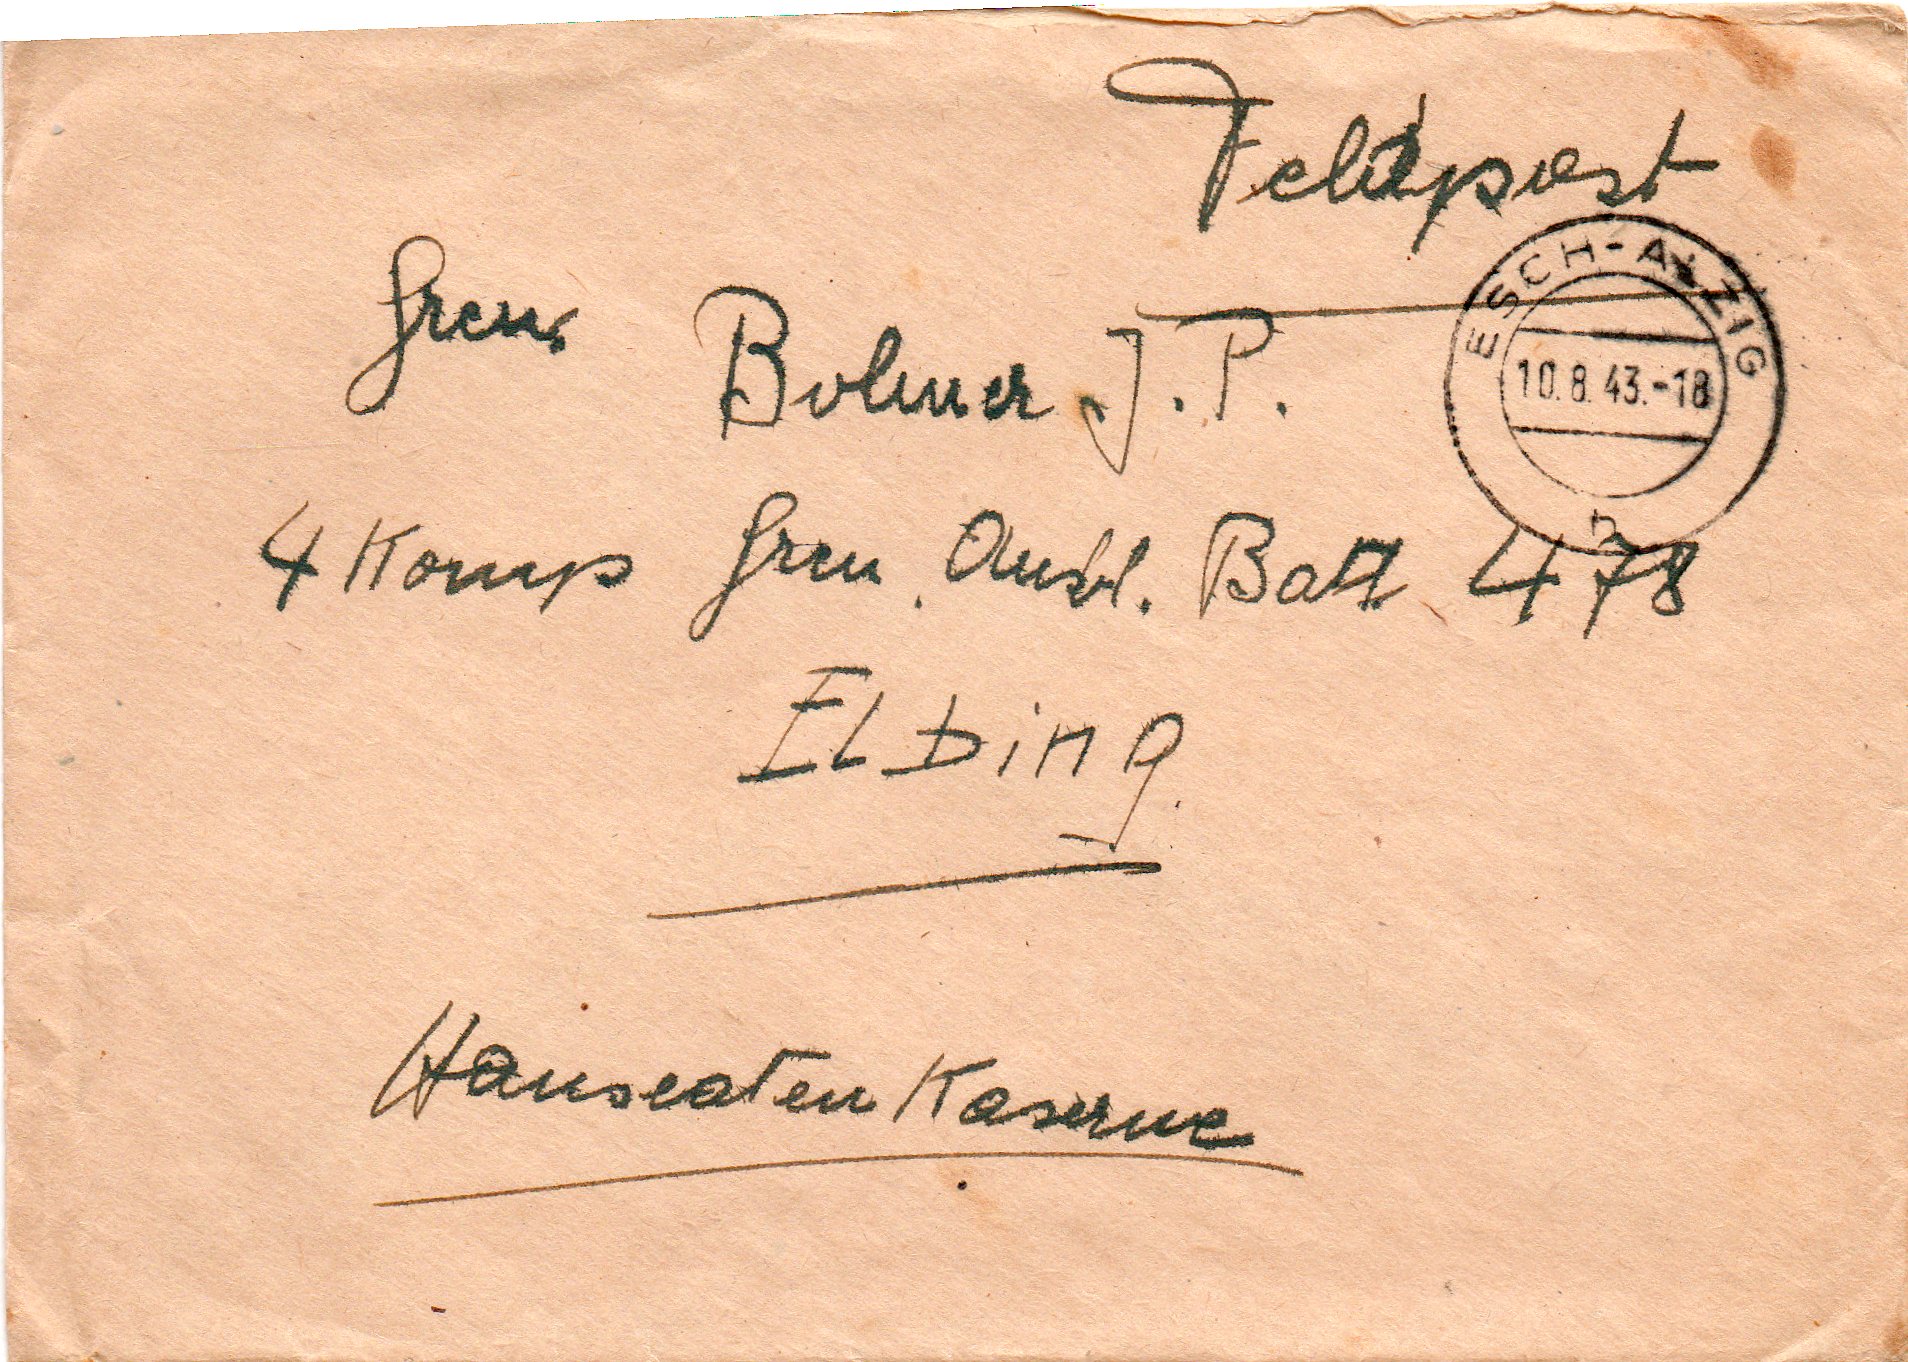 Feldpost
ESCH-ALZIG
10.8.43.-18
Gren. Bohner J.P.
4 Komp Gren. Ausb. Batl 478
Elbing.
Hanseaten Kaserne